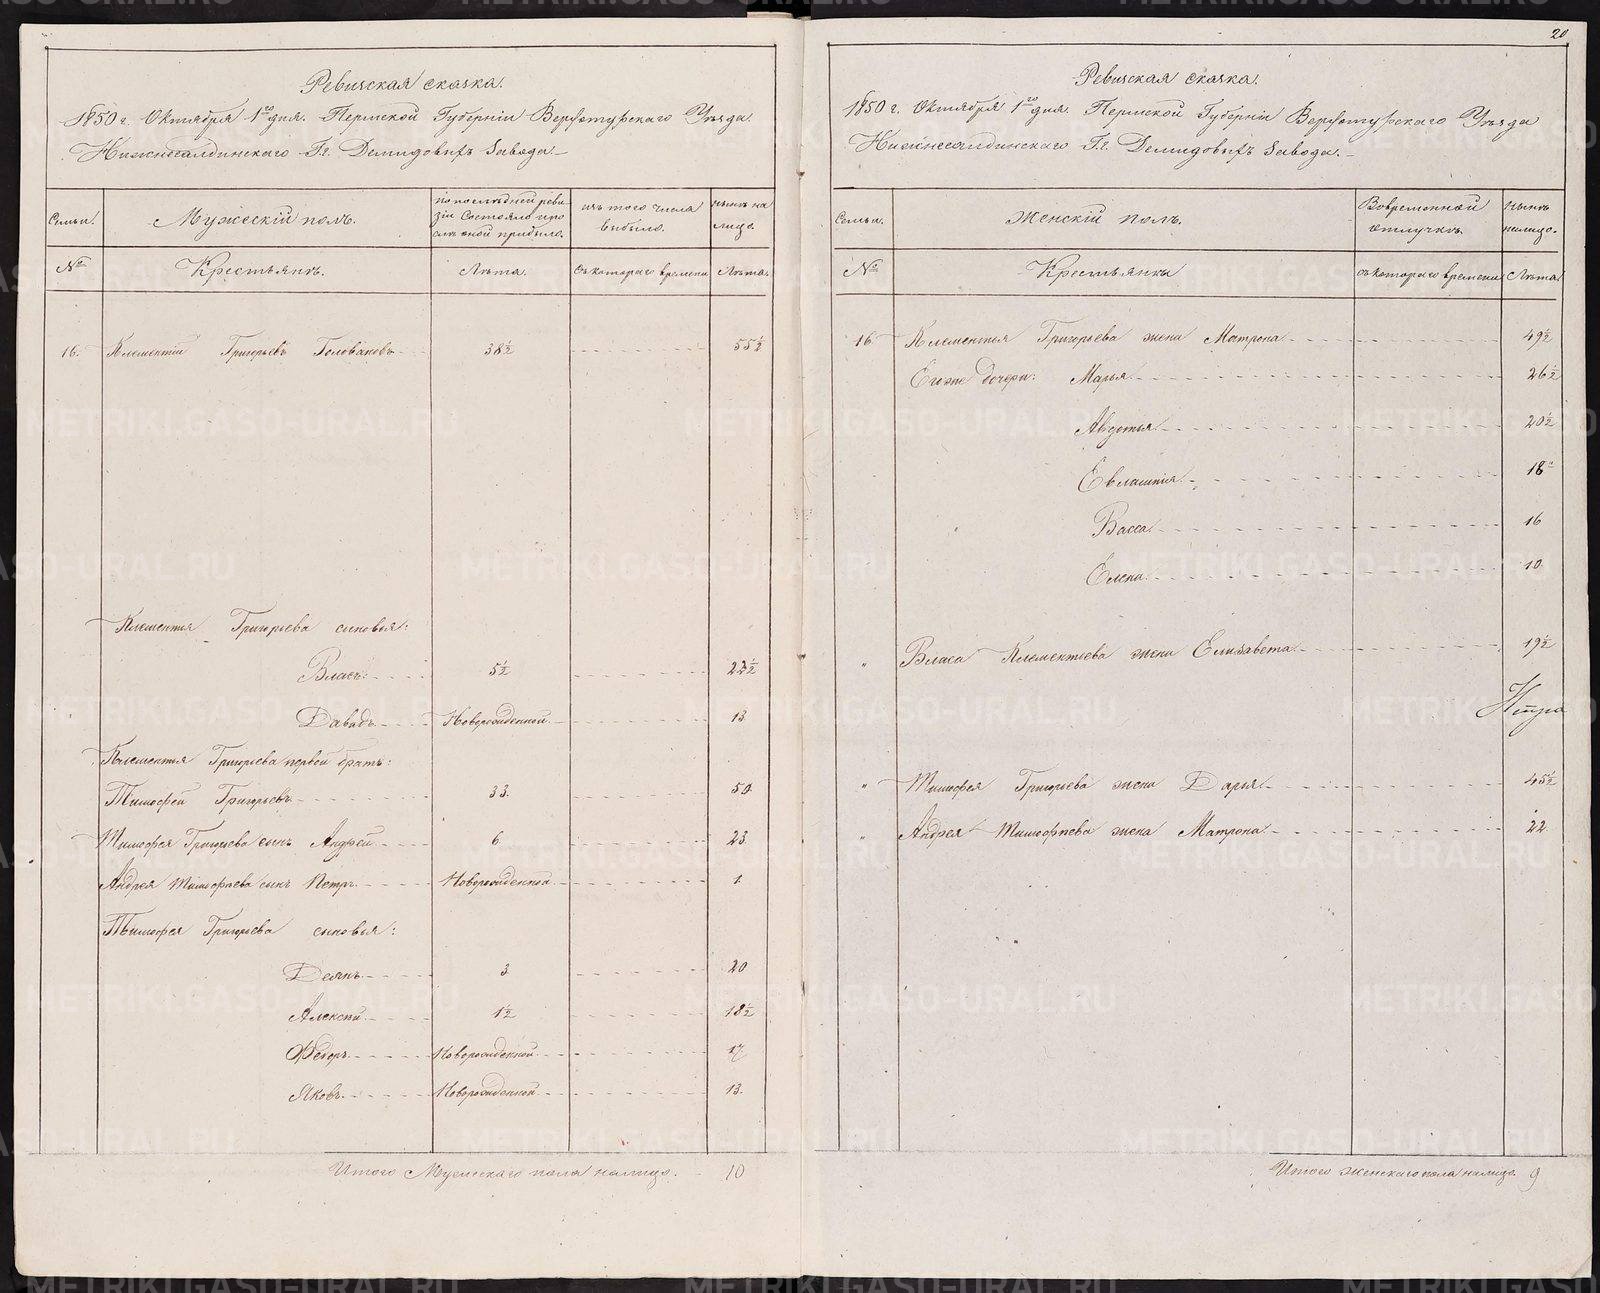 Ревизская сказка.
1850 г. Октября 1го дня. Пермской Губерніи Верхотурскаго Уѣзда
Нижнесалдинскаго Г.г. Демидовыхъ Завода.
Семьи.
Мужескій полъ.
по послѣдней реви-
зіи состояло и по
слѣ оной прибыло.
изъ того числа
выбыло.
нынѣ на
лицо.
№
Крестьянъ.
Лѣта.
съ котораго времени
Лѣта.
16. Клементій Григорьевъ Головановъ 38½ 55½
Клементья Григорьева сыновья:
Власъ 5½ 22½
Давыдъ Новорожденной 13.
Клементья Григорьева первой братъ:
Тимофей Григорьевъ 33. 50.
Тимофея Григорьева сынъ Андрей 6 23.
Андрея Тимофеева сынъ Петръ Новорожденной 1.
Тимофея Григорьева сыновья:
Деянъ 3 20
Алексѣй 1½ 18½
Федоръ Новорожденной 17.
Яковъ Новорожденной 13.
Итого Мужескаго пола налицо. 10
20
Ревизская сказка.
1850 г. Октября 1го дня. Пермской Губерніи Верхотурскаго Уѣзда
Нижнесалдинскаго Г.г. Демидовыхъ Завода.
Семьи.
Женскій полъ.
Во временной
отлучкѣ.
нынѣ
налицо.
№
Крестьянки
съ котораго времени
Лѣта.
16 Клементья Григорьева жена Матрона 49½
Его же дочери: Марья 26½
Авдотья 20½
Евлампія 18
Васса 16
Елена 10.
" Власа Клементьева жена Елизавета 19½
" Тимофея Григорьева жена Дарья 45½
" Андрея Тимофеева жена Матрона 22.
Итого женскаго пола налицо. 9
METRIKI.GASO-URAL.RU